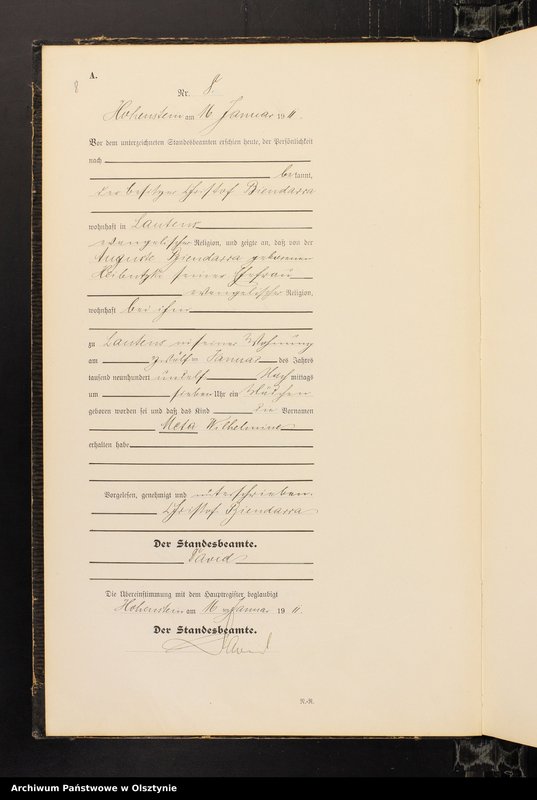 A.
8
Nr. 8.
Hohenstein am 16 Januar 1911.
Vor dem unterzeichneten Standesbeamten erschien heute, der Persönlichkeit
nach
bekannt,
der Besitzer Christof Biendarra
wohnhaft in Lautens
evangelischer Religion, und zeigte an, daß von der
Auguste Biendarra geborenen
seiner Ehefrau
evangelischer Religion,
wohnhaft bei ihm
zu Lautens in seiner Wohnung
am zwölften Januar des Jahres
tausend neunhundert und elf Nachmittags
um sieben Uhr ein Mädchen
geboren worden sei und daß das Kind die Vornamen
Meta Wilhelmine
erhalten habe
Vorgelesen, genehmigt und unterschrieben.
Christof Biendarra
Der Standesbeamte.
David
Die Übereinstimmung mit dem Hauptregister beglaubigt
Hohenstein am 16 Januar 1911.
Der Standesbeamte.
David
N.-R.
Archiwum Państwowe w Olsztynie